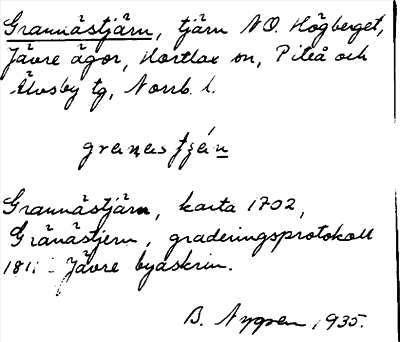 Grannästjärn, tjärn NO. Högberget,
Jävre ägor, Hortlax sn, Piteå och
Älvsby tg, Norrb. l.
granastjä́n
Grannästjärn, karta 1702,
Gränästjern, graderingsprotokoll
Jävre byaskrin.
B. Nygren 1935.